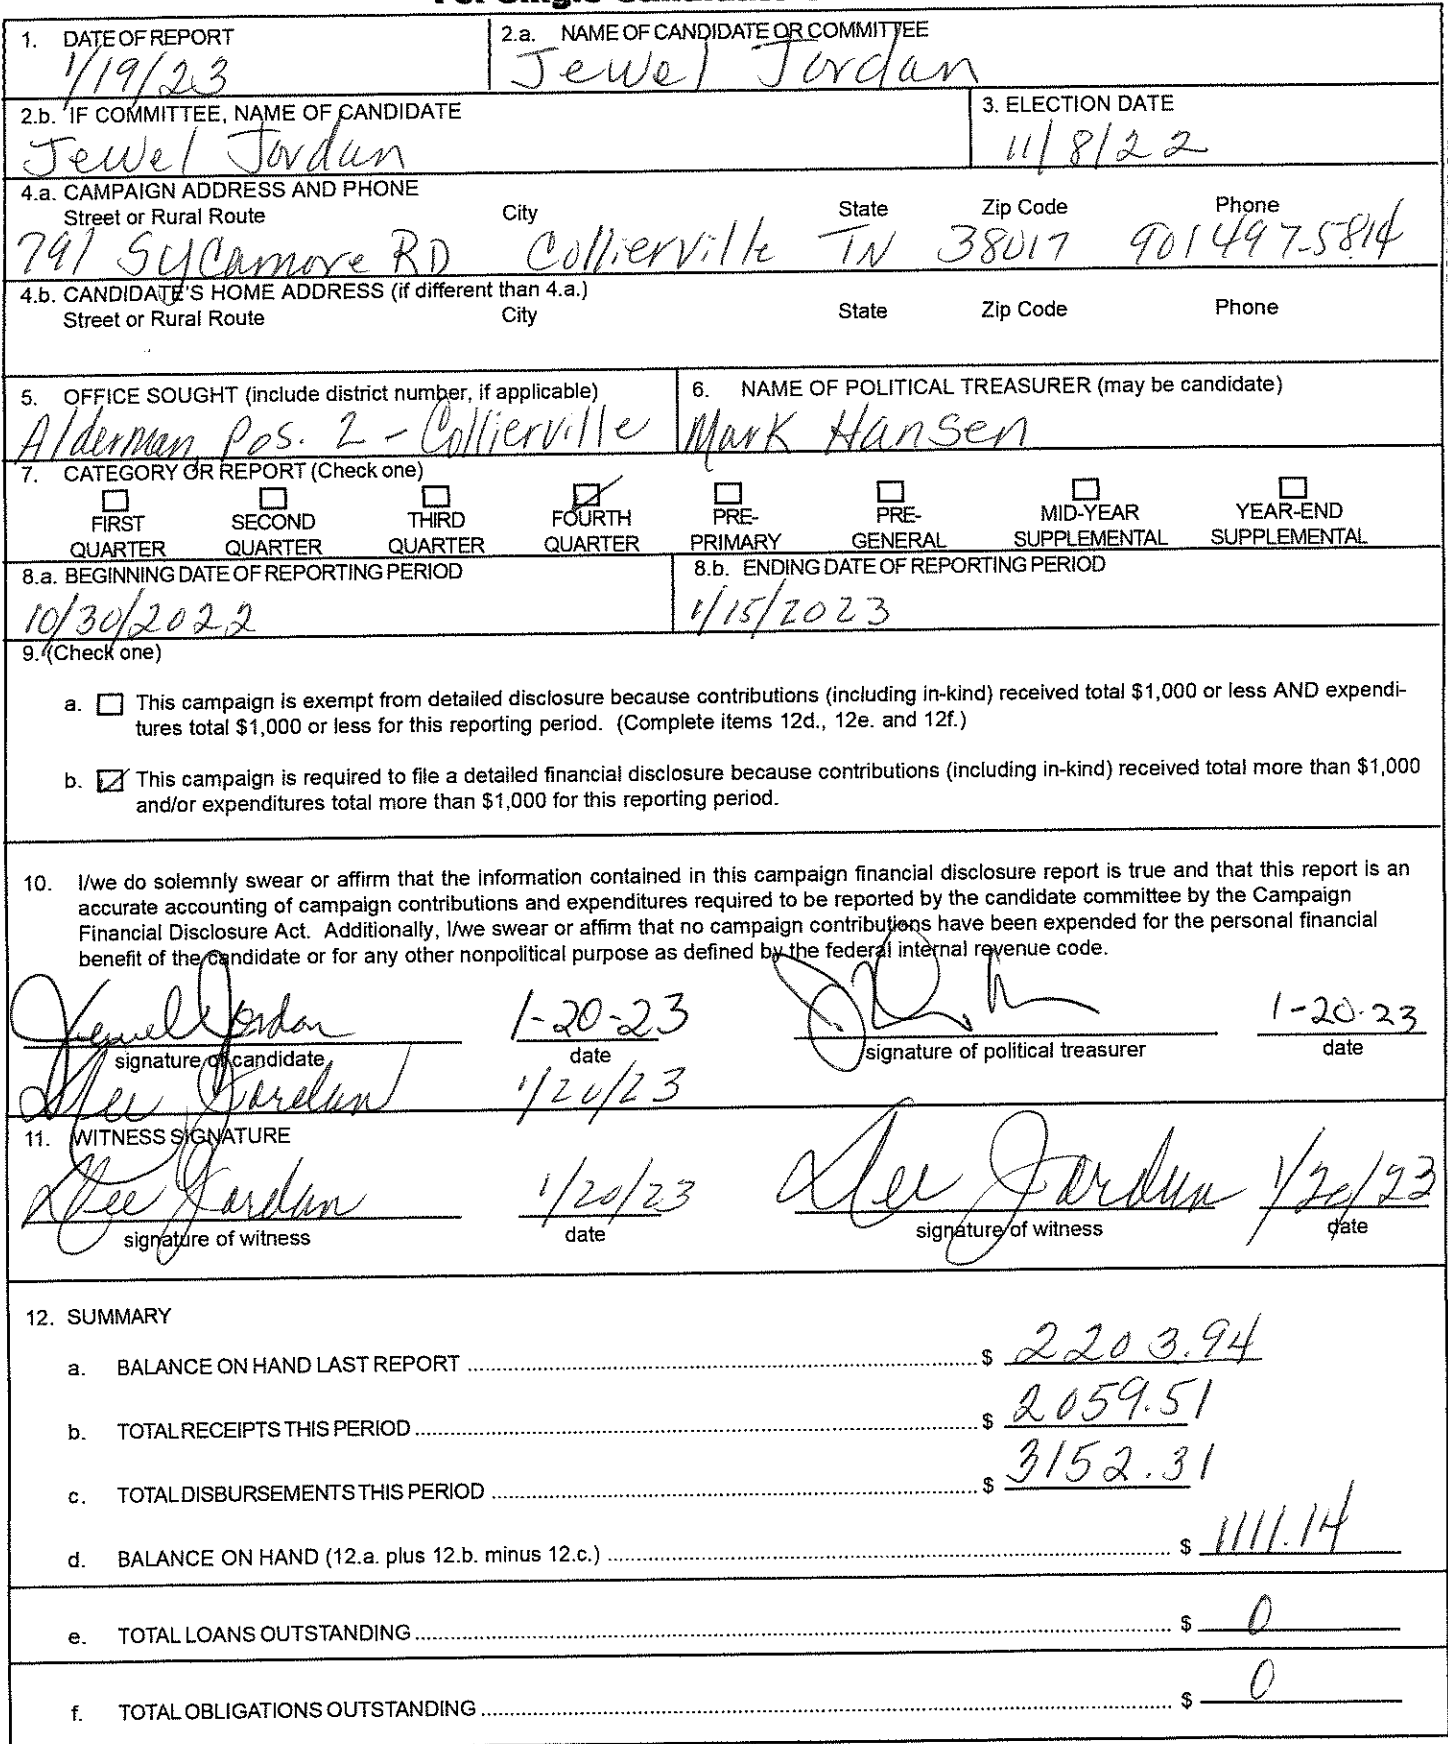 1. DATE OF REPORT
1/19/23
2.a. NAME OF CANDIDATE OR COMMITTEE
Jewel Jordan
2.b. IF COMMITTEE, NAME OF CANDIDATE
Jewel Jordan
3. ELECTION DATE
11/8/22
4.a. CAMPAIGN ADDRESS AND PHONE
Street or Rural Route City State Zip Code Phone
791 Sycamore RD Collierville TN 38017 901 497-5814
4.b. CANDIDATE'S HOME ADDRESS (if different than 4.a.)
Street or Rural Route City State Zip Code Phone
5. OFFICE SOUGHT (include district number, if applicable)
Alderman Pos. 2 - Collierville
6. NAME OF POLITICAL TREASURER (may be candidate)
Mark Hansen
7. CATEGORY OR REPORT (Check one)
FIRST QUARTER
SECOND QUARTER
THIRD QUARTER
FOURTH QUARTER
PRE-PRIMARY
PRE-GENERAL
MID-YEAR SUPPLEMENTAL
YEAR-END SUPPLEMENTAL
8.a. BEGINNING DATE OF REPORTING PERIOD
10/30/2022
8.b. ENDING DATE OF REPORTING PERIOD
1/15/2023
9. (Check one)
a. This campaign is exempt from detailed disclosure because contributions (including in-kind) received total $1,000 or less AND expendi-
tures total $1,000 or less for this reporting period. (Complete items 12d., 12e. and 12f.)
b. This campaign is required to file a detailed financial disclosure because contributions (including in-kind) received total more than $1,000
and/or expenditures total more than $1,000 for this reporting period.
10. I/we do solemnly swear or affirm that the information contained in this campaign financial disclosure report is true and that this report is an
accurate accounting of campaign contributions and expenditures required to be reported by the candidate committee by the Campaign
Financial Disclosure Act. Additionally, I/we swear or affirm that no campaign contributions have been expended for the personal financial
benefit of the candidate or for any other nonpolitical purpose as defined by the federal internal revenue code.
Jewel Jordan 1-20-23 1-20-23
signature of candidate date signature of political treasurer date
Dee Jordan 1/20/23
11. WITNESS SIGNATURE
Dee Jordan 1/20/23 Dee Jordan 1/20/23
signature of witness date signature of witness date
12. SUMMARY
a. BALANCE ON HAND LAST REPORT $ 2203.94
b. TOTAL RECEIPTS THIS PERIOD $ 2059.51
c. TOTAL DISBURSEMENTS THIS PERIOD $ 3152.31
d. BALANCE ON HAND (12.a. plus 12.b. minus 12.c.) $ 1111.14
e. TOTAL LOANS OUTSTANDING $ 0
f. TOTAL OBLIGATIONS OUTSTANDING $ 0